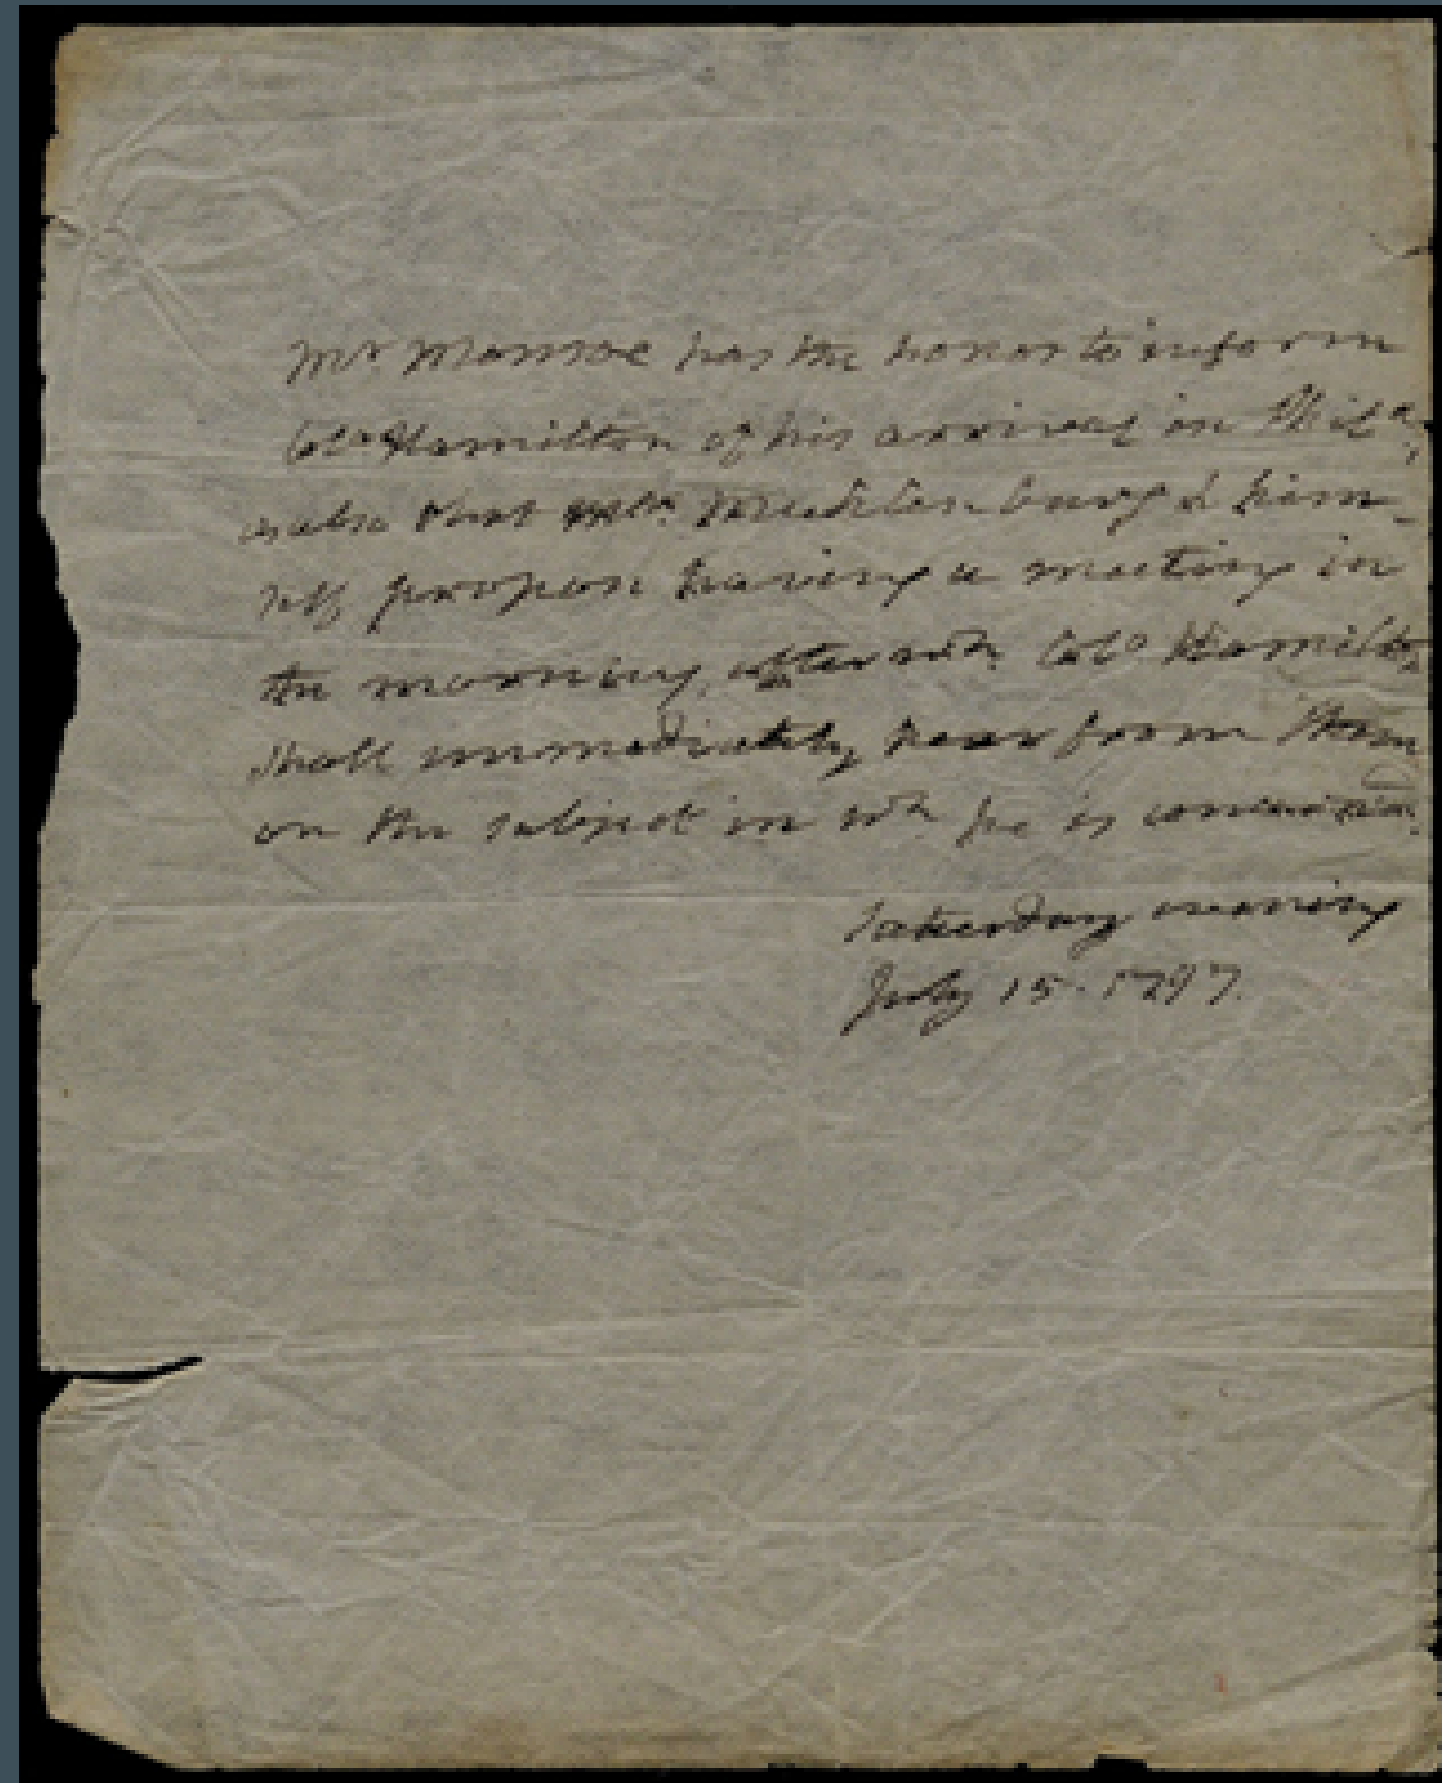 Mr. Monroe has the honor to inform
Colo. Hamilton of his arrival in Phila.,
as also that Mr. Muhlenburg & him-
self propose having a meeting in
the morning, after wch. Colo. Hamilton
shall immediately hear from them
on the subject in wch. he is concerned.
Saturday evening
July 15. 1797.